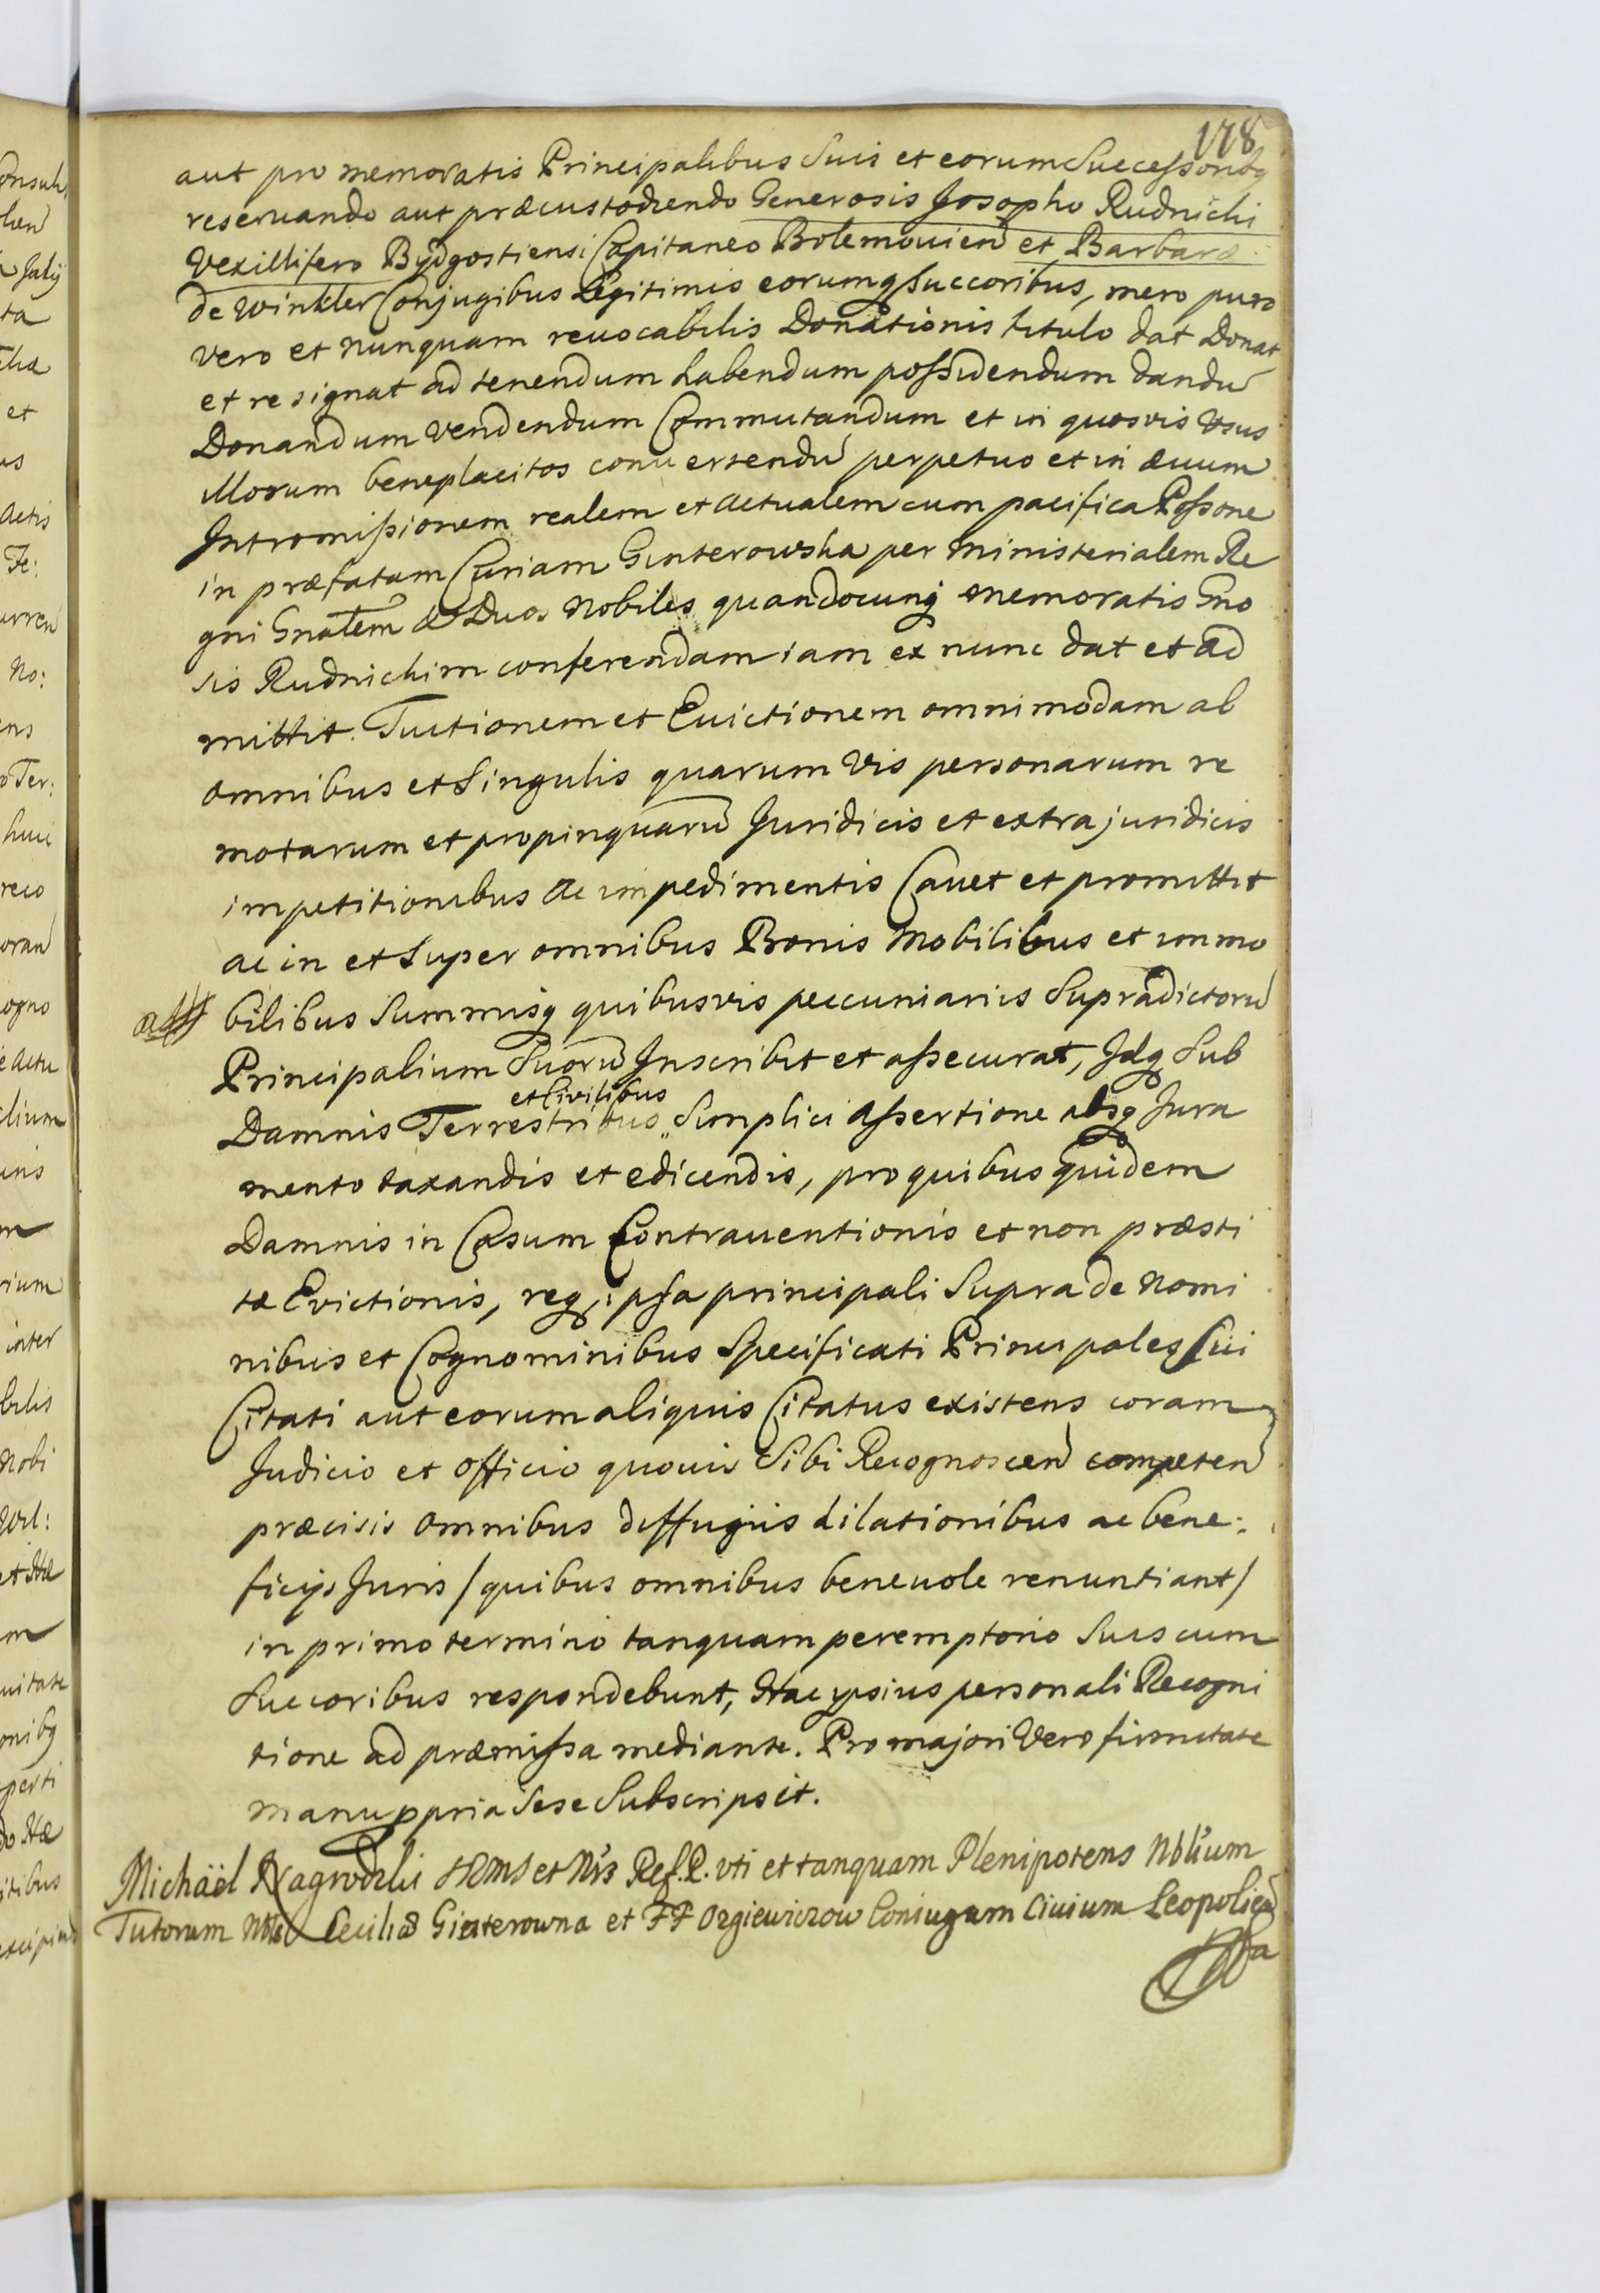 178
aut pro memoratis Principalibus Suis et eorum Successoribq
reseruando aut præcustodiendo Generosis Josopho Rudnicki
Vexillifero Bydgostiensi Capitaneo Bolemouien et Barbaræ
de Winkler Conjugibus Legitimis eorumq Succoribus, mero puro
vero et nunquam reuocabilis Donationis titulo dat Donat
et resignat ad tenendum habendum possidendum dandu
Donandum Vendendum Commutandum et in quosvis Usus
illorum beneplacitos conuertendu perpetuo et in æuum
Intromissionem realem et actualem cum pacifica Possone
in præfatam Curiam Ginterowska per Ministerialem Re
gni Gnalem & Duos Nobiles quandocunq memoratis Gno
sis Rudnickim conferendam iam ex nunc dat et ad
mittit. Tuitionem et Euictionem omnimodam ab
omnibus et Singulis quarum Vis personarum re
motarum et propinquaru Juridicis et extrajuridicis
impetitionibus ac impedimentis Cauet et promittit
ac in et Super omnibus Bonis Mobilibus et immo
bilibus Summisq quibusvis peccuniariis Supradictoru
Principalium Suoru Inscribit et assecurat, Idq Sub
et Civilibus
Damnis Terrestribus Simplici Assertione absq Jura
mento taxandis et edicendis, pro quibus Quidem
Damnis in Casum Contrauentionis et non præsti
tæ Evictionis, req ipsa principali Supra de Nomi
nibus et Cognominibus Specificati Principales Sui
Citati aut eorum aliquis Citatus existens coram
Judicio et Officio quouis Sibi Recognoscen competen
præcisis Omnibus diffugiis dilationibus ac bene:
ficijs Juris / quibus omnibus beneuole renuntiant /
in primo termino tanquam peremptorio Suis cum
Succoribus respondebunt, Hac ipsius personali Recogni
tione ad præmissa mediante. Pro majori Vero firmitate
manu ppria Sese Subscripsit.
Michaël Nagrodzki et Nris Ref. R. vti et tanquam Plenipotens Nblium
Tutorum Nblis Ceciliæ Ginterowna et FF Ozgiewiczow Coniugum Ciuium Leopolien